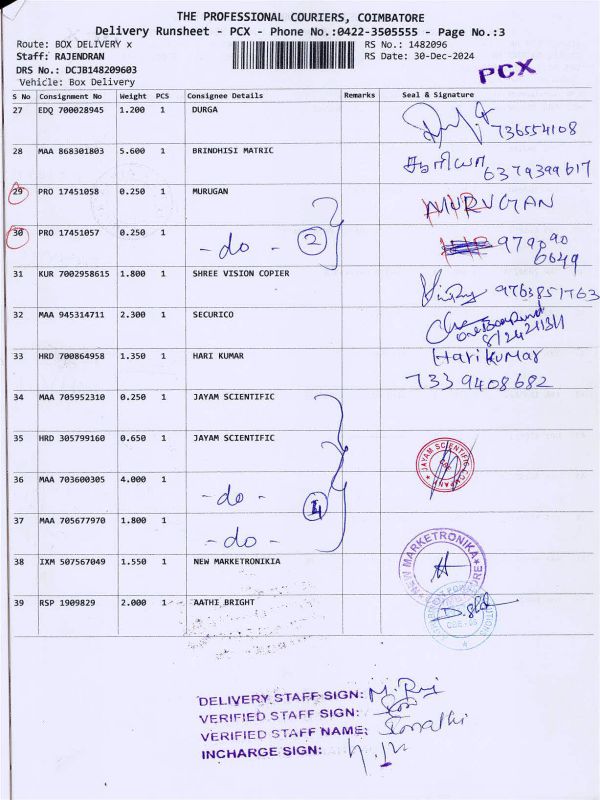 THE PROFESSIONAL COURIERS, COIMBATORE
Delivery Runsheet - PCX - Phone No.:0422-3505555 - Page No.:3
Route: BOX DELIVERY x RS No.: 1482096
Staff: RAJENDRAN RS Date: 30-Dec-2024
DRS No.: DCJB148209603
Vehicle: Box Delivery
PCX
S No Consignment No Weight PCS Consignee Details Remarks Seal & Signature
27 EDQ 700028945 1.200 1 DURGA
736554108
28 MAA 868301803 5.600 1 BRINDHISI MATRIC
6379399617
29 PRO 17451058 0.250 1 MURUGAN MURUGAN
30 PRO 17451057 0.250 1 - do - 2 979090
6649
31 KUR 7002958615 1.800 1 SHREE VISION COPIER 9763851763
32 MAA 945314711 2.300 1 SECURICO
33 HRD 700864958 1.350 1 HARI KUMAR Hari Kumar
7339408682
34 MAA 705952310 0.250 1 JAYAM SCIENTIFIC
35 HRD 305799160 0.650 1 JAYAM SCIENTIFIC JAYAM SCIENTIFIC COMPANY
36 MAA 703600305 4.000 1 - do - 4
37 MAA 705677970 1.800 1 - do -
38 IXM 507567049 1.550 1 NEW MARKETRONIKIA NEW MARKETRONIKA
39 RSP 1909829 2.000 1 AATHI BRIGHT
DELIVERY STAFF SIGN:
VERIFIED STAFF SIGN:
VERIFIED STAFF NAME:
INCHARGE SIGN: